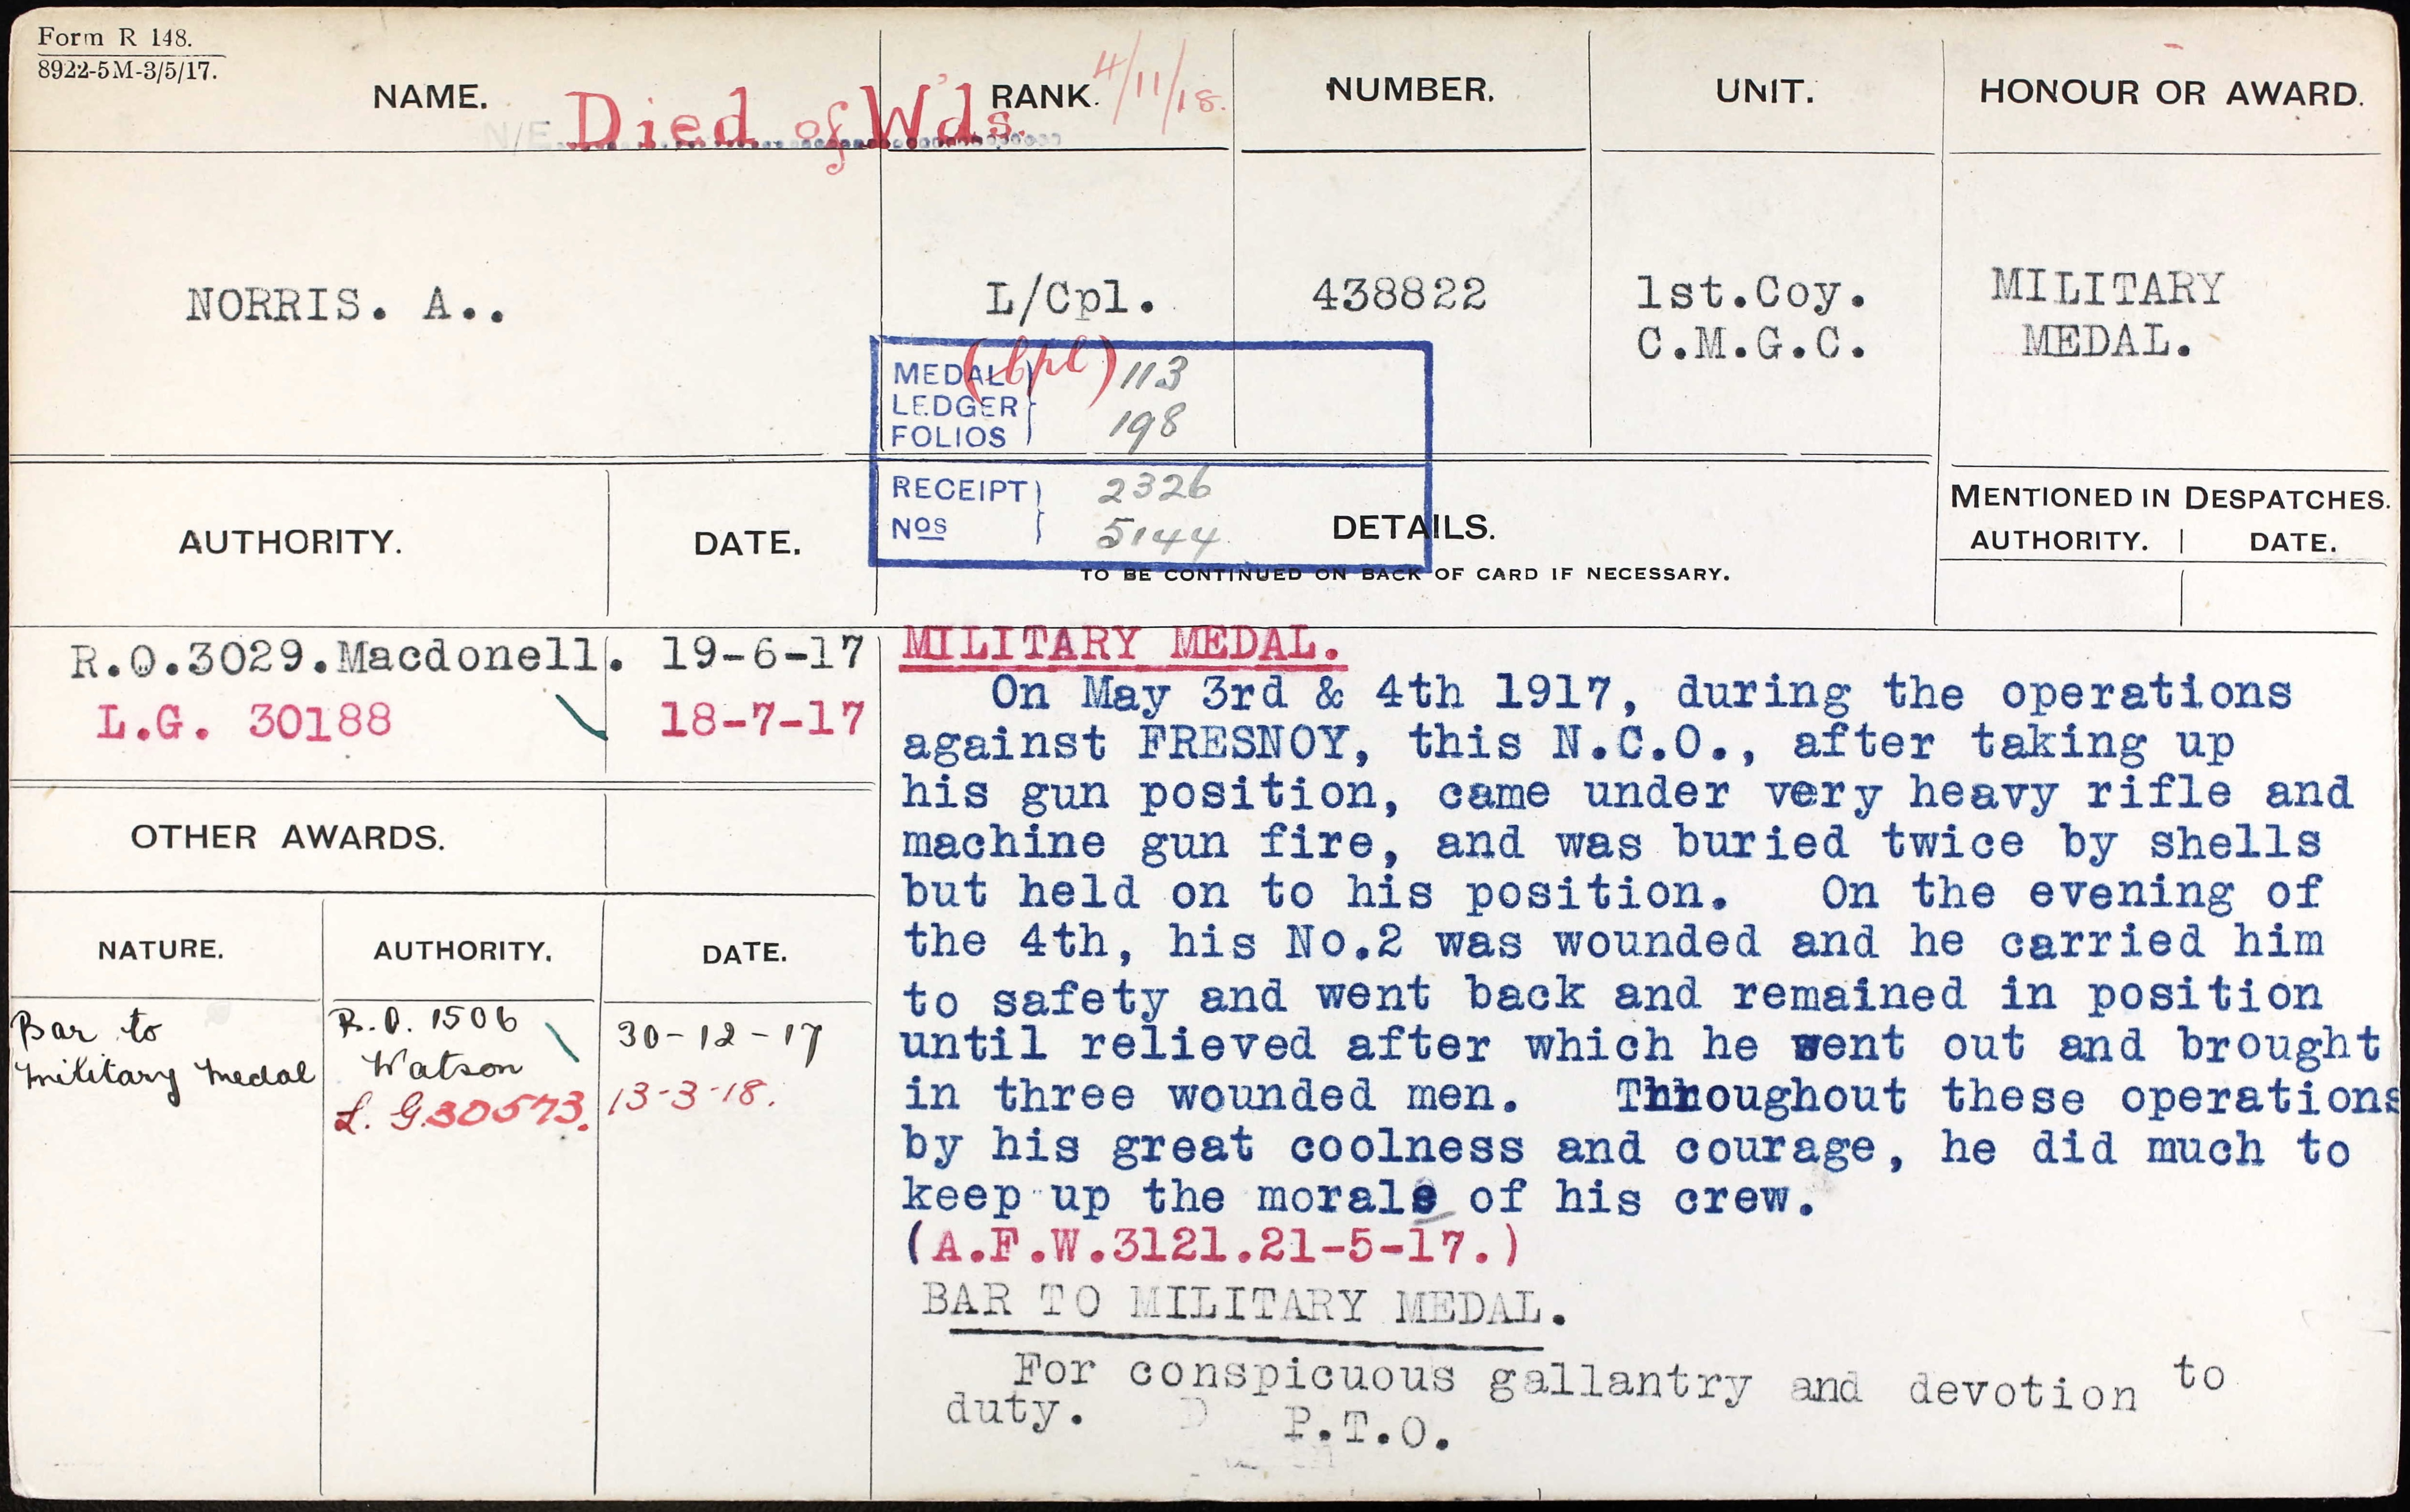 Form R 148.
8922-5M-3/5/17.
NAME.
RANK.
NUMBER.
UNIT.
HONOUR OR AWARD.
N/E Died of W'ds. 4/11/18.
NORRIS. A..
L/Cpl.
(Cpl)
438822
1st.Coy.
C.M.G.C.
MILITARY
MEDAL.
MEDAL 113
LEDGER
FOLIOS 198
RECEIPT 2326
Nos 5144
AUTHORITY.
DATE.
DETAILS.
TO BE CONTINUED ON BACK OF CARD IF NECESSARY.
MENTIONED IN DESPATCHES.
AUTHORITY. | DATE.
R.O.3029.Macdonell. 19-6-17
L.G. 30188 18-7-17
OTHER AWARDS.
NATURE.
AUTHORITY.
DATE.
Bar to
Military Medal
R.O. 1506
Watson
L. G. 30573.
30-12-17
13-3-18.
MILITARY MEDAL.
On May 3rd & 4th 1917, during the operations
against FRESNOY, this N.C.O., after taking up
his gun position, came under very heavy rifle and
machine gun fire, and was buried twice by shells
but held on to his position. On the evening of
the 4th, his No.2 was wounded and he carried him
to safety and went back and remained in position
until relieved after which he went out and brought
in three wounded men. Throughout these operations
by his great coolness and courage, he did much to
keep up the morale of his crew.
(A.F.W.3121.21-5-17.)
BAR TO MILITARY MEDAL.
For conspicuous gallantry and devotion to
duty. P.T.O.